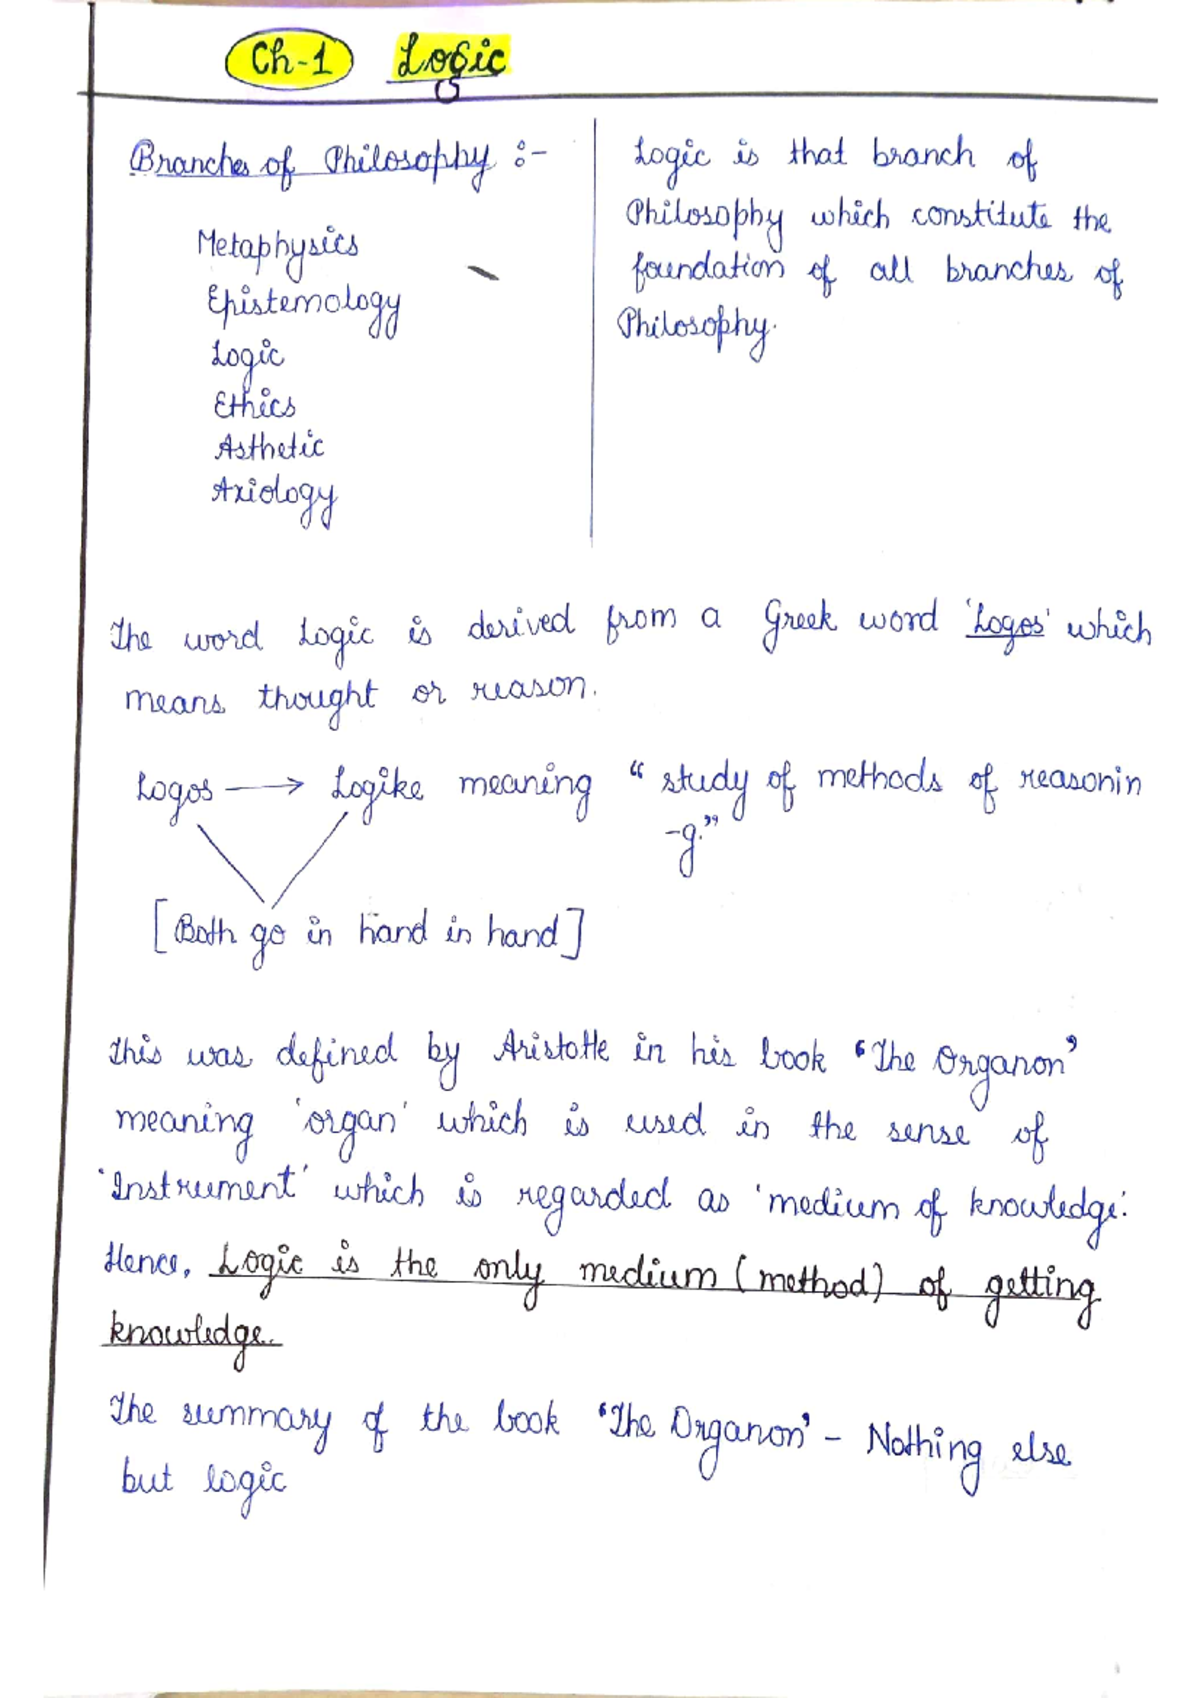 Ch-1 Logic
Branches of Philosophy :-
Metaphysics
Epistemology
Logic
Ethics
Asthetic
Axiology
Logic is that branch of
Philosophy which constitute the
foundation of all branches of
Philosophy.
The word Logic is derived from a Greek word 'Logos' which
means thought or reason.
Logos → Logike meaning "study of methods of reasonin
-g."
[Both go in hand in hand]
This was defined by Aristotle in his book 'The Organon'
meaning 'organ' which is used in the sense of
'Instrument' which is regarded as 'medium of knowledge'.
Hence, Logic is the only medium (method) of getting
knowledge.
The summary of the book 'The Organon' - Nothing else
but logic